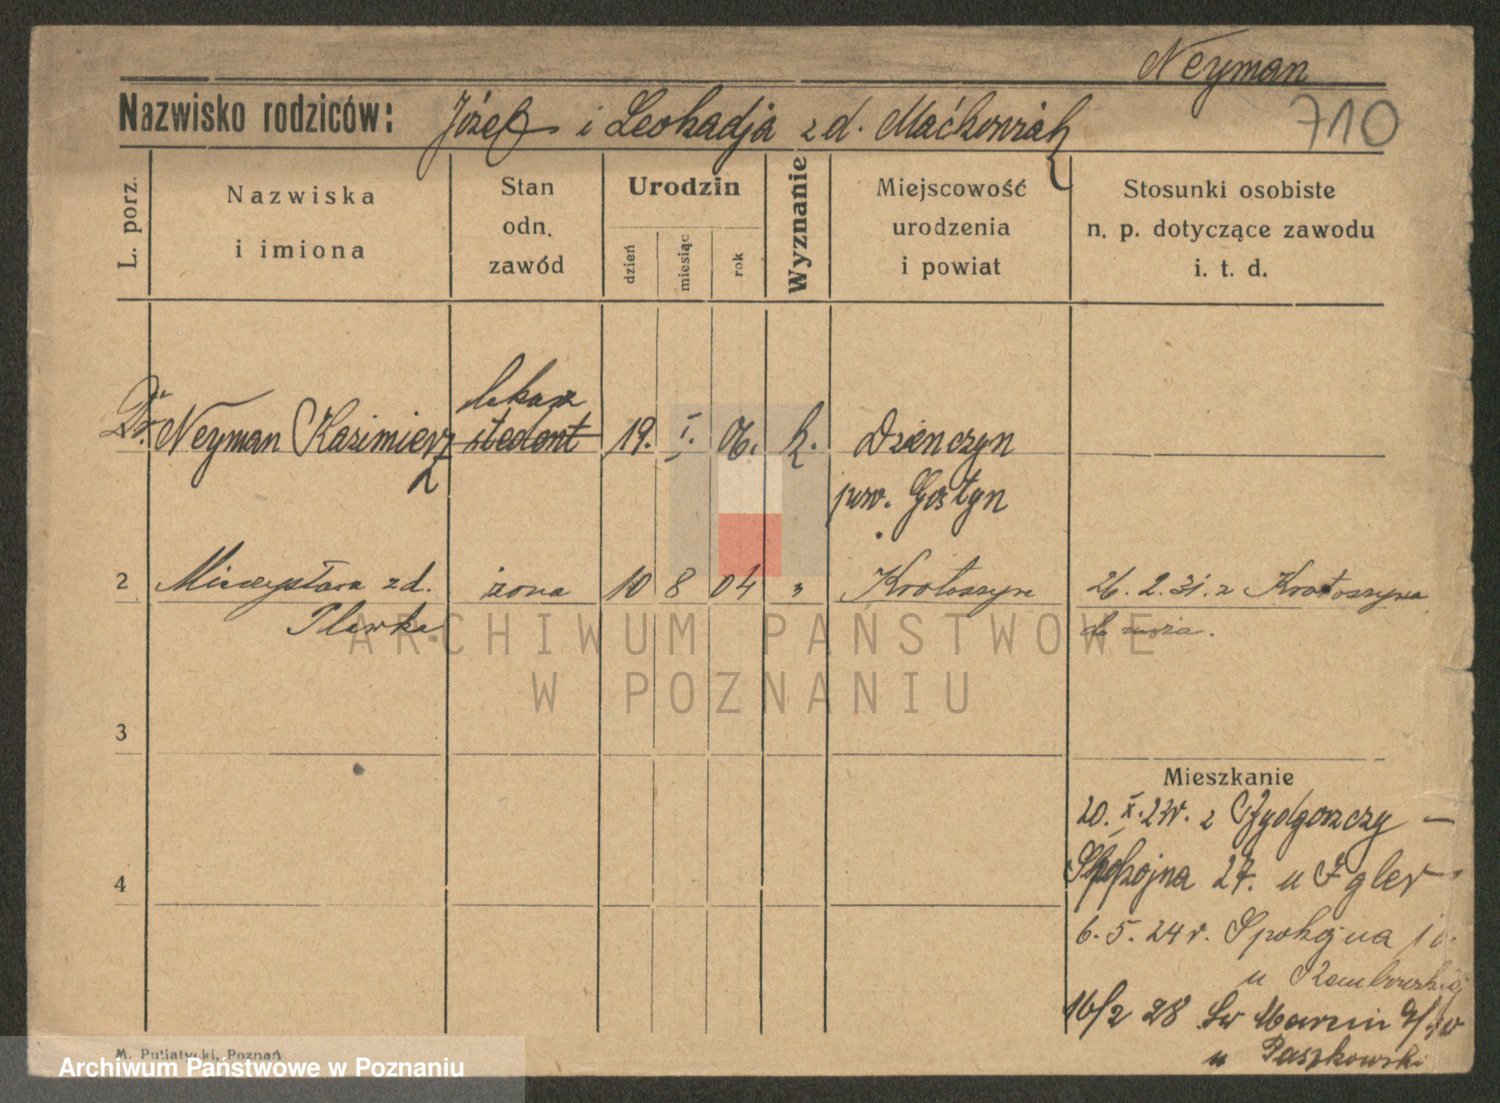 Neyman
710
Nazwisko rodziców: Józef i Leokadja z d. Maćkowiak
L. porz.
Nazwiska
i imiona
Stan
odn.
zawód
Urodzin
dzień
miesiąc
rok
Wyznanie
Miejscowość
urodzenia
i powiat
Stosunki osobiste
n. p. dotyczące zawodu
i. t. d.
lekarz
Dr. Neyman Kazimierz student 19. I. 06. k. Dzienczyn
pow. Gostyn
2 Mieczysława z d. żona 10 8 04 " Krotoszyn 26. 2. 31. z Krotoszyna
do męża.
3
Mieszkanie
20. X. z Bydgoszczy —
4
Spokojna 27. u Igler
6. 5. 24 r. Spokojna
u
16/2 28 Św Marcin
u Paszkowski
M. Putiatycki, Poznań
ARCHIWUM PAŃSTWOWE
W POZNANIU
Archiwum Państwowe w Poznaniu